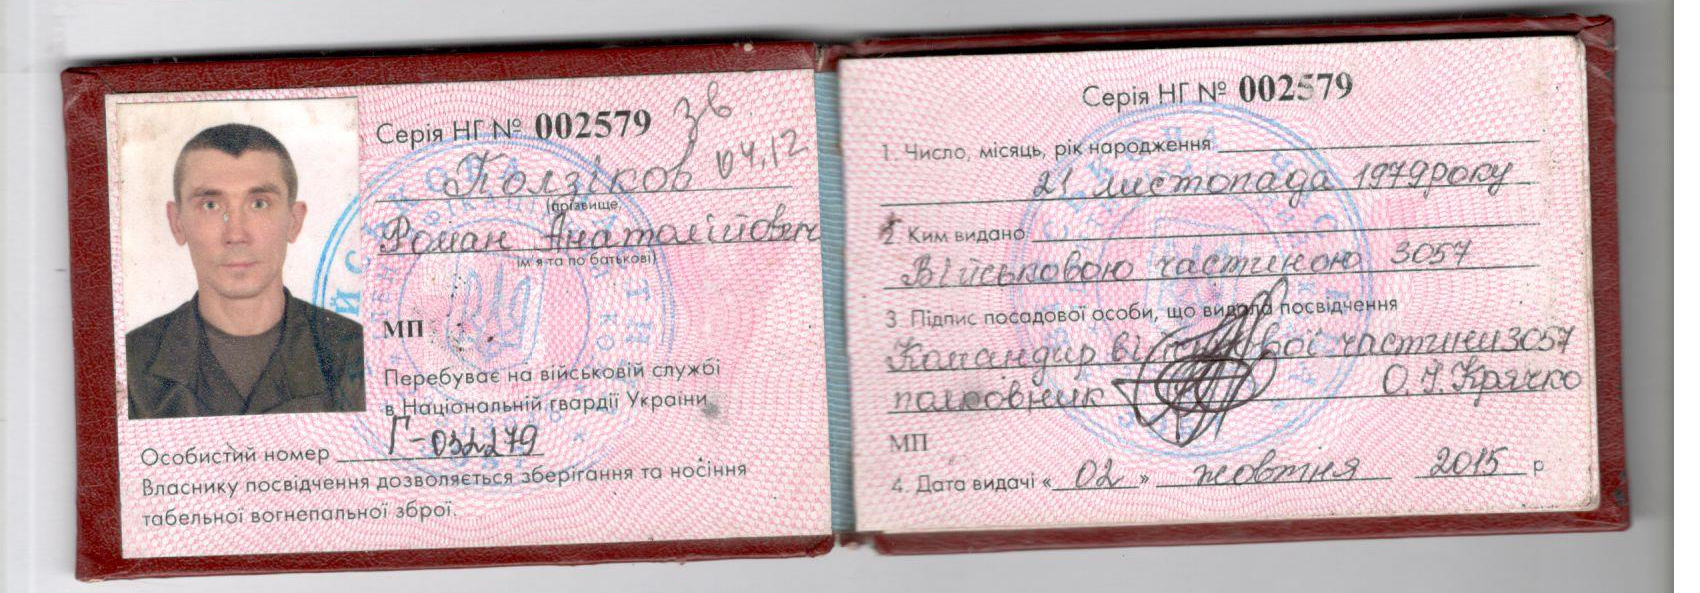 Серія НГ № 002579
зв
04.12
Колзіков
(прізвище,
Роман Анатолійович
ім'я та по батькові)
МП
Перебуває на військовій службі
в Національній гвардії України
Особистий номер Г-032279
Власнику посвідчення дозволяється зберігання та носіння
табельної вогнепальної зброї.
Серія НГ № 002579
1. Число, місяць, рік народження
21 листопада 1979 року
2. Ким видано
Військовою частиною 3057
3 Підпис посадової особи, що видала посвідчення
Командир військової частини 3057
полковник О.І. Крячко
МП
4. Дата видачі «02» жовтня 2015 р